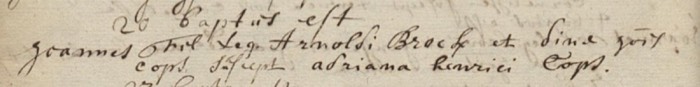 26 baptus est
Joannes fil leg Arnoldi Brock et dinæ Jōis
Cops Suscept adriana henrici Cops.